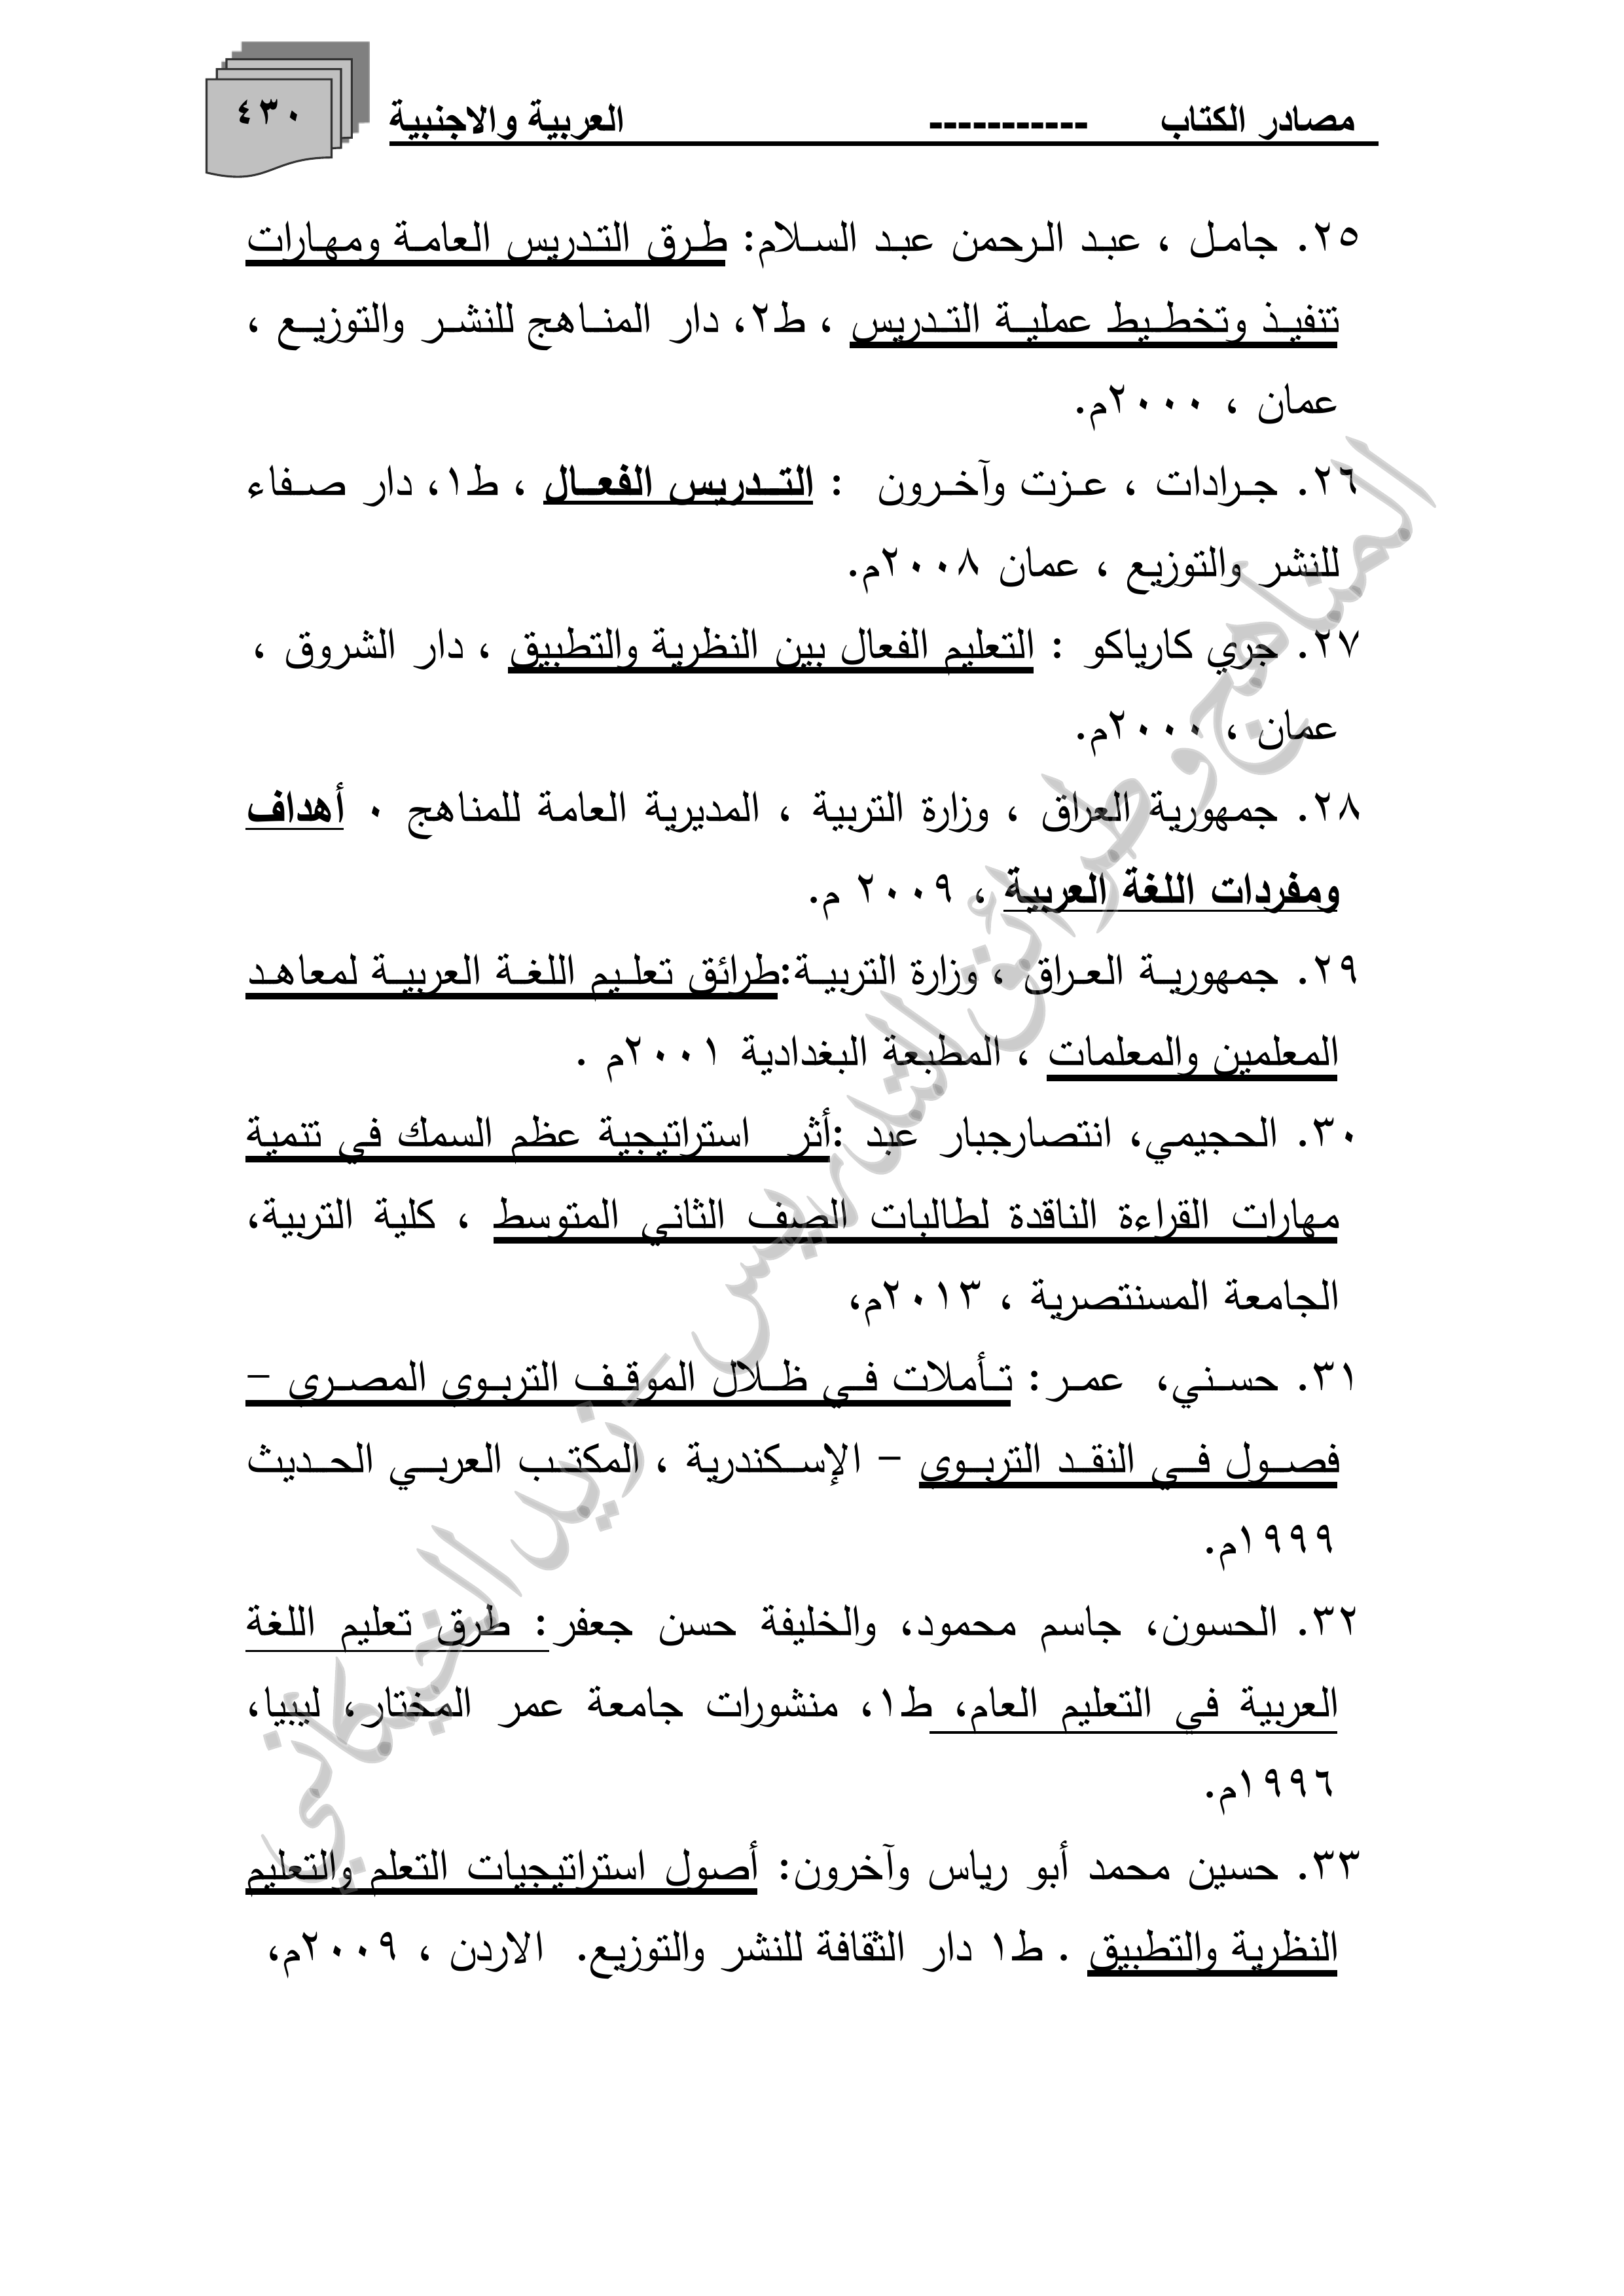 مصادر الكتاب ----------- العربية والاجنبية ٤٣٠
٢٥. جامل ، عبد الرحمن عبد السلام: طرق التدريس العامة ومهارات
تنفيذ وتخطيط عملية التدريس ، ط٢، دار المناهج للنشر والتوزيع ،
عمان ، ٢٠٠٠م.
٢٦. جرادات ، عزت وآخرون : التدريس الفعال ، ط١، دار صفاء
للنشر والتوزيع ، عمان ٢٠٠٨م.
٢٧. جري كارياكو : التعليم الفعال بين النظرية والتطبيق ، دار الشروق ،
عمان ، ٢٠٠٠م.
٢٨. جمهورية العراق ، وزارة التربية ، المديرية العامة للمناهج ٠ أهداف
ومفردات اللغة العربية ، ٢٠٠٩ م.
٢٩. جمهورية العراق ، وزارة التربية:طرائق تعليم اللغة العربية لمعاهد
المعلمين والمعلمات ، المطبعة البغدادية ٢٠٠١م .
٣٠. الحجيمي، انتصارجبار عبد :أثر استراتيجية عظم السمك في تنمية
مهارات القراءة الناقدة لطالبات الصف الثاني المتوسط ، كلية التربية،
الجامعة المسنتصرية ، ٢٠١٣م،
٣١. حسني، عمر: تأملات في ظلال الموقف التربوي المصري –
فصول في النقد التربوي – الإسكندرية ، المكتب العربي الحديث
١٩٩٩م.
٣٢. الحسون، جاسم محمود، والخليفة حسن جعفر: طرق تعليم اللغة
العربية في التعليم العام، ط١، منشورات جامعة عمر المختار، ليبيا،
١٩٩٦م.
٣٣. حسين محمد أبو رياس وآخرون: أصول استراتيجيات التعلم والتعليم
النظرية والتطبيق . ط١ دار الثقافة للنشر والتوزيع. الاردن ، ٢٠٠٩م،
المناهج وطرائق التدريس - زيد الخيكاني